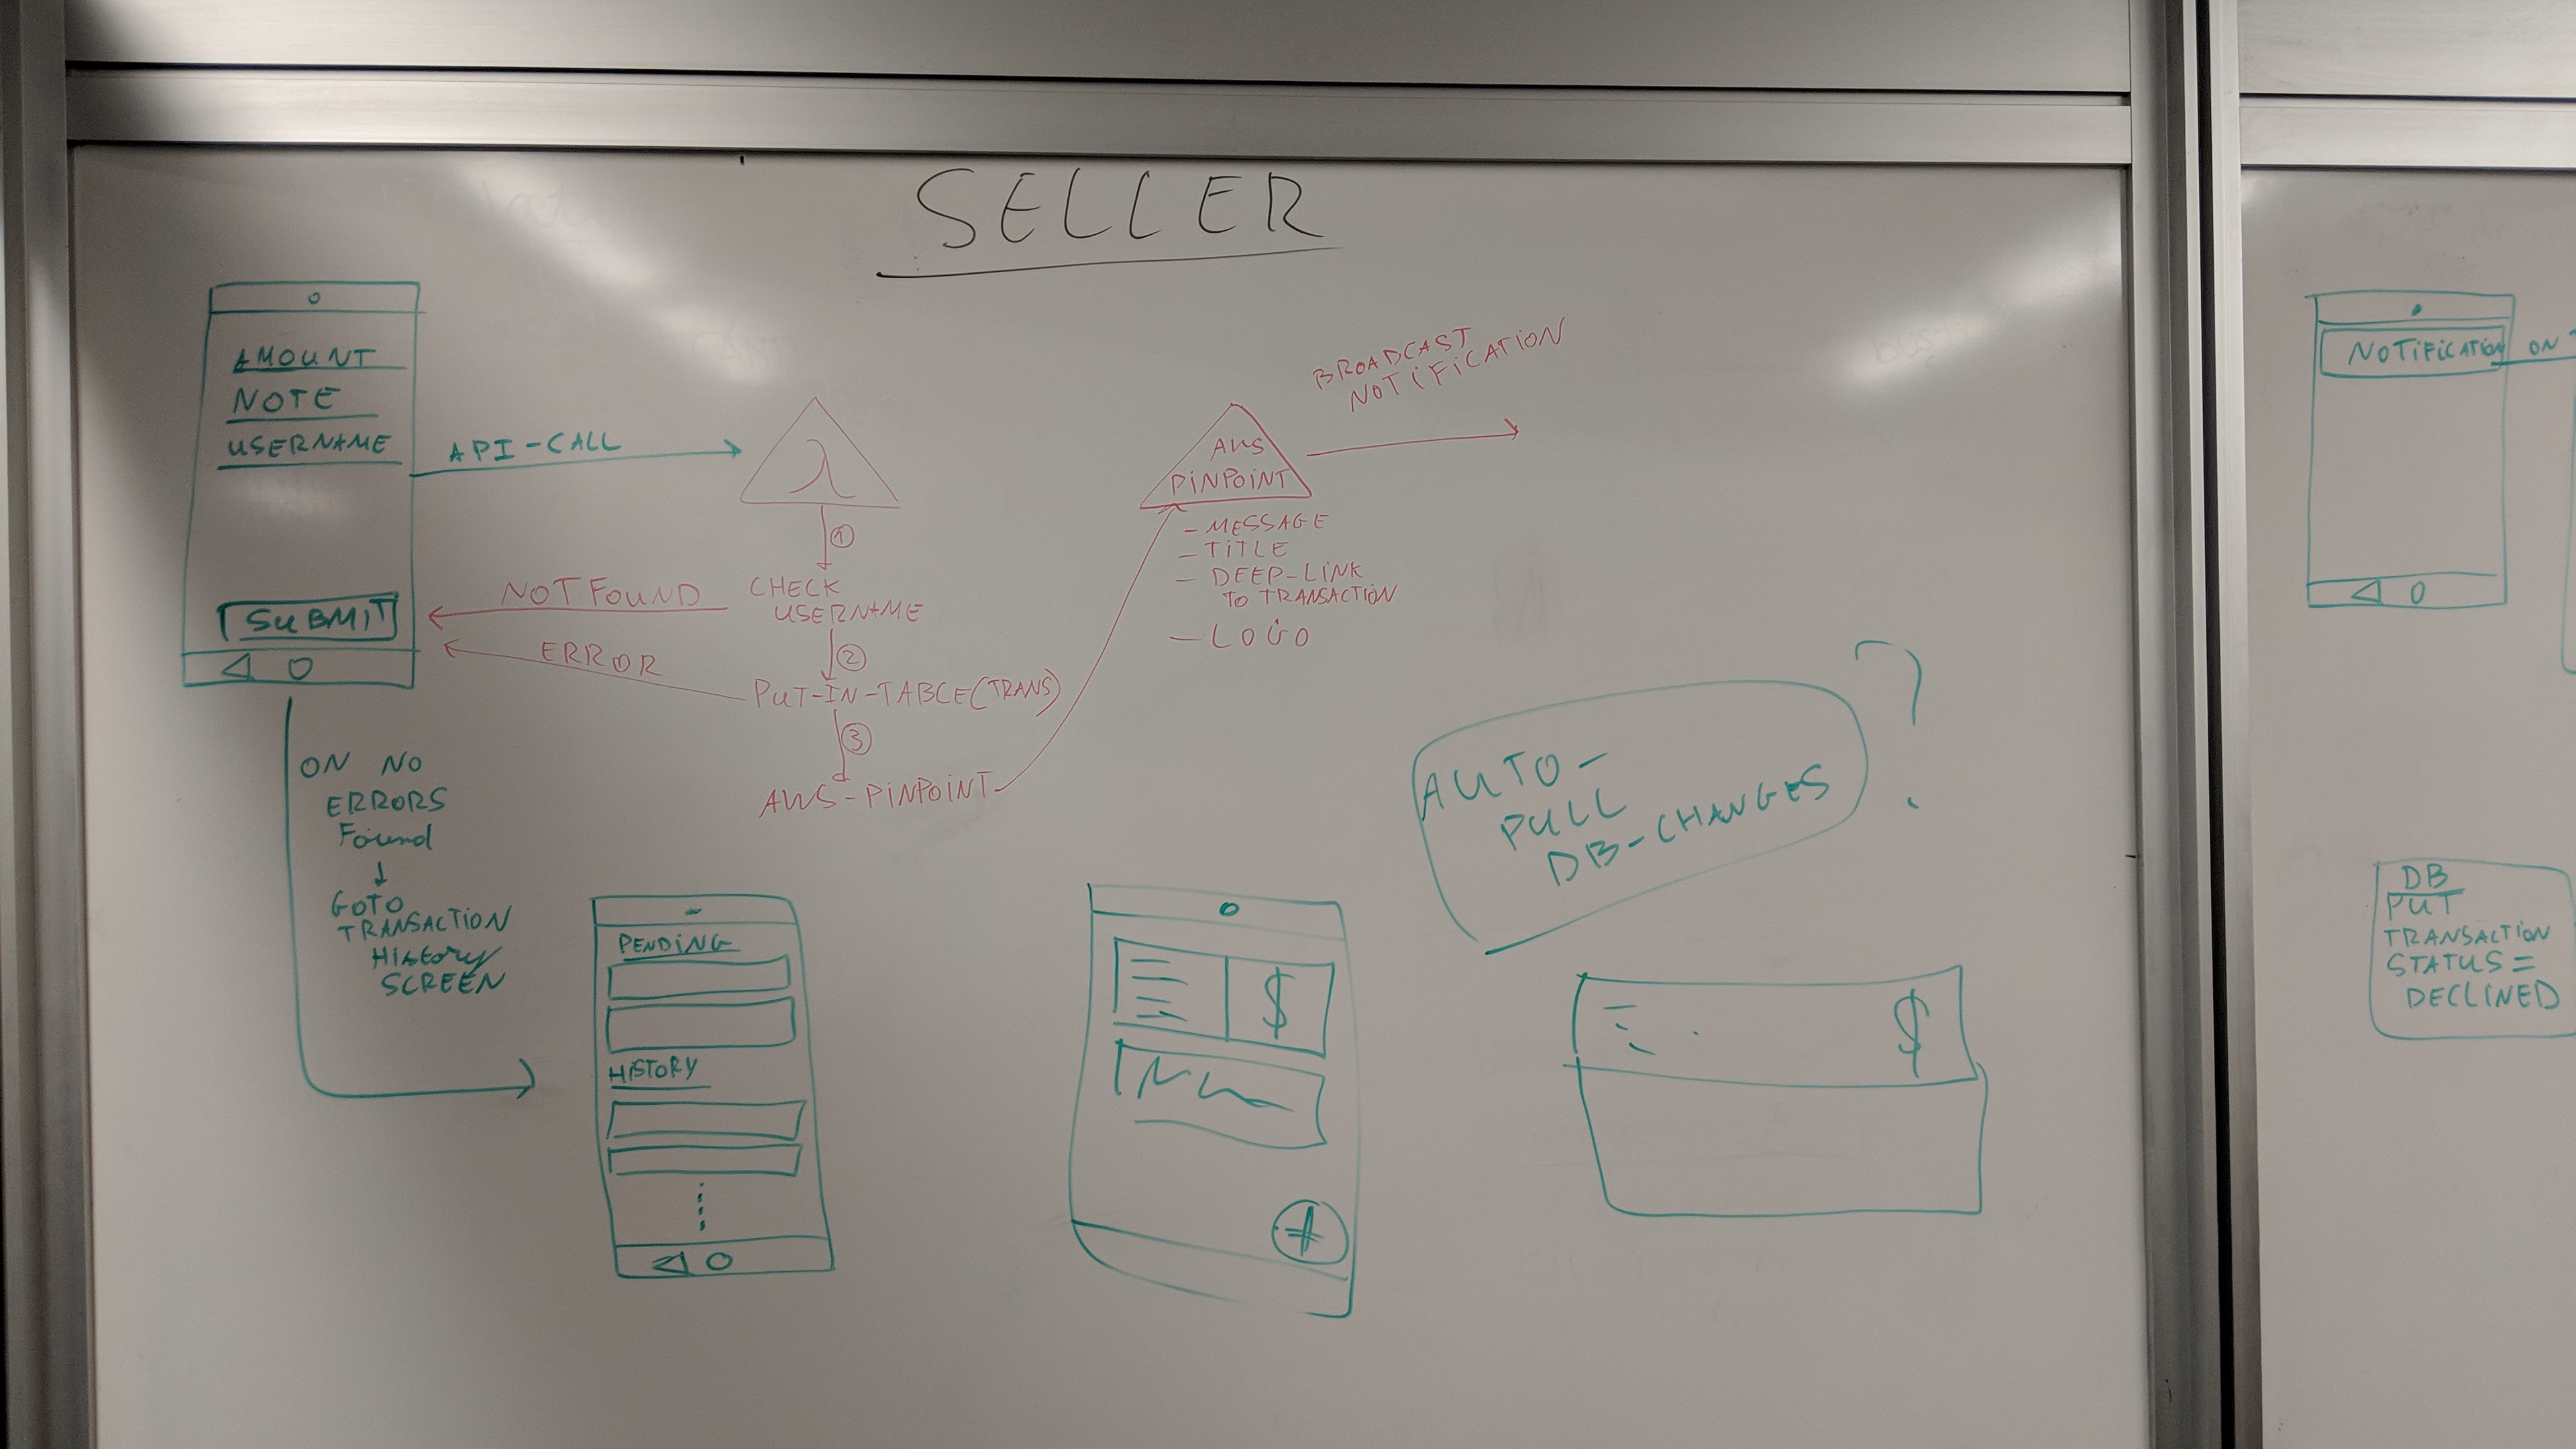 SELLER
AMOUNT
NOTE
USERNAME
SUBMIT
API-CALL
λ
①
CHECK
USERNAME
NOT FOUND
②
PUT-IN-TABLE(TRANS)
ERROR
③
AWS-PINPOINT
AWS
PINPOINT
- MESSAGE
- TITLE
- DEEP-LINK
TO TRANSACTION
- LOGO
BROADCAST
NOTIFICATION
ON NO
ERRORS
Found
↓
GOTO
TRANSACTION
HISTORY
SCREEN
PENDING
HISTORY
$
+
AUTO-
PULL
DB-CHANGES
?
$
NOTIFICATION ON
DB
PUT
TRANSACTION
STATUS =
DECLINED